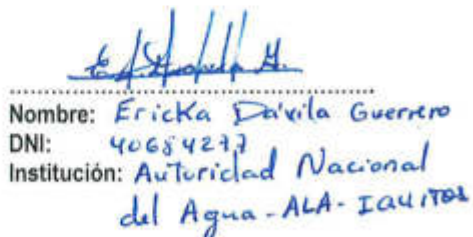 Nombre: Ericka Dávila Guerrero
DNI: 40684277
Institución: Autoridad Nacional
del Agua - ALA - IQUITOS